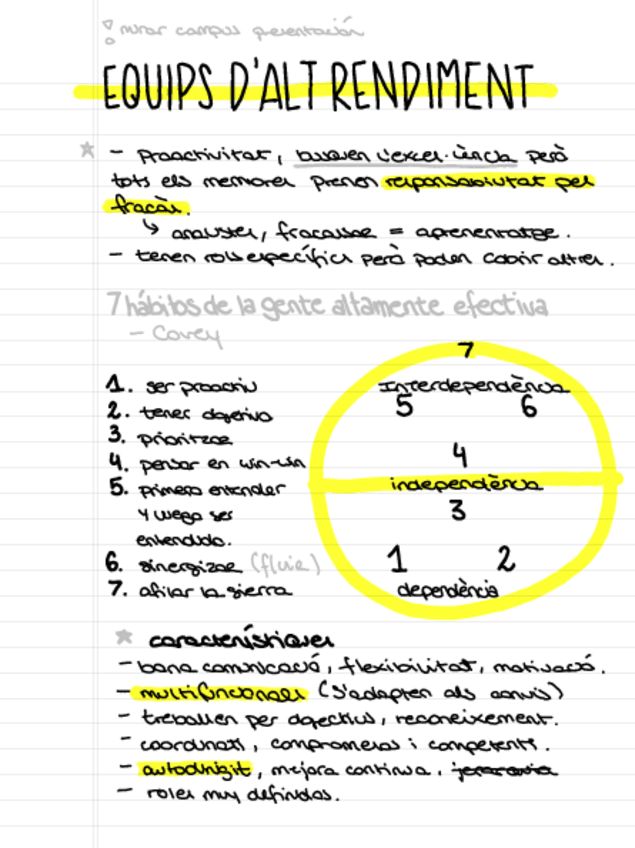 ! mirar campus presentación
EQUIPS D'ALT RENDIMENT
- Proactivitat, busquen l'excel·lència però
tots els membres prenen responsabilitat pel
fracàs.
↳ analitzar, fracassar = aprenentatge.
- tenen rols específics però poden cobrir altres.
7 hábitos de la gente altamente efectiva
- Covey
1. ser proactiu
2. tener objetivo
3. prioritzar
4. pensar en win-win
5. primero entender
y luego ser
entendido.
6. sinergizar (fluir)
7. afilar la sierra
7
Interdependència
5 6
4
independència
3
1 2
dependència
característiques
- bona comunicació, flexibilitat, motivació.
- multifuncionals (s'adapten als canvis)
- treballen per objectius, reconeixement.
- coordinats, compromesos i competents.
- autodirigit, mejora continua, jerarquia
- roles muy definidos.